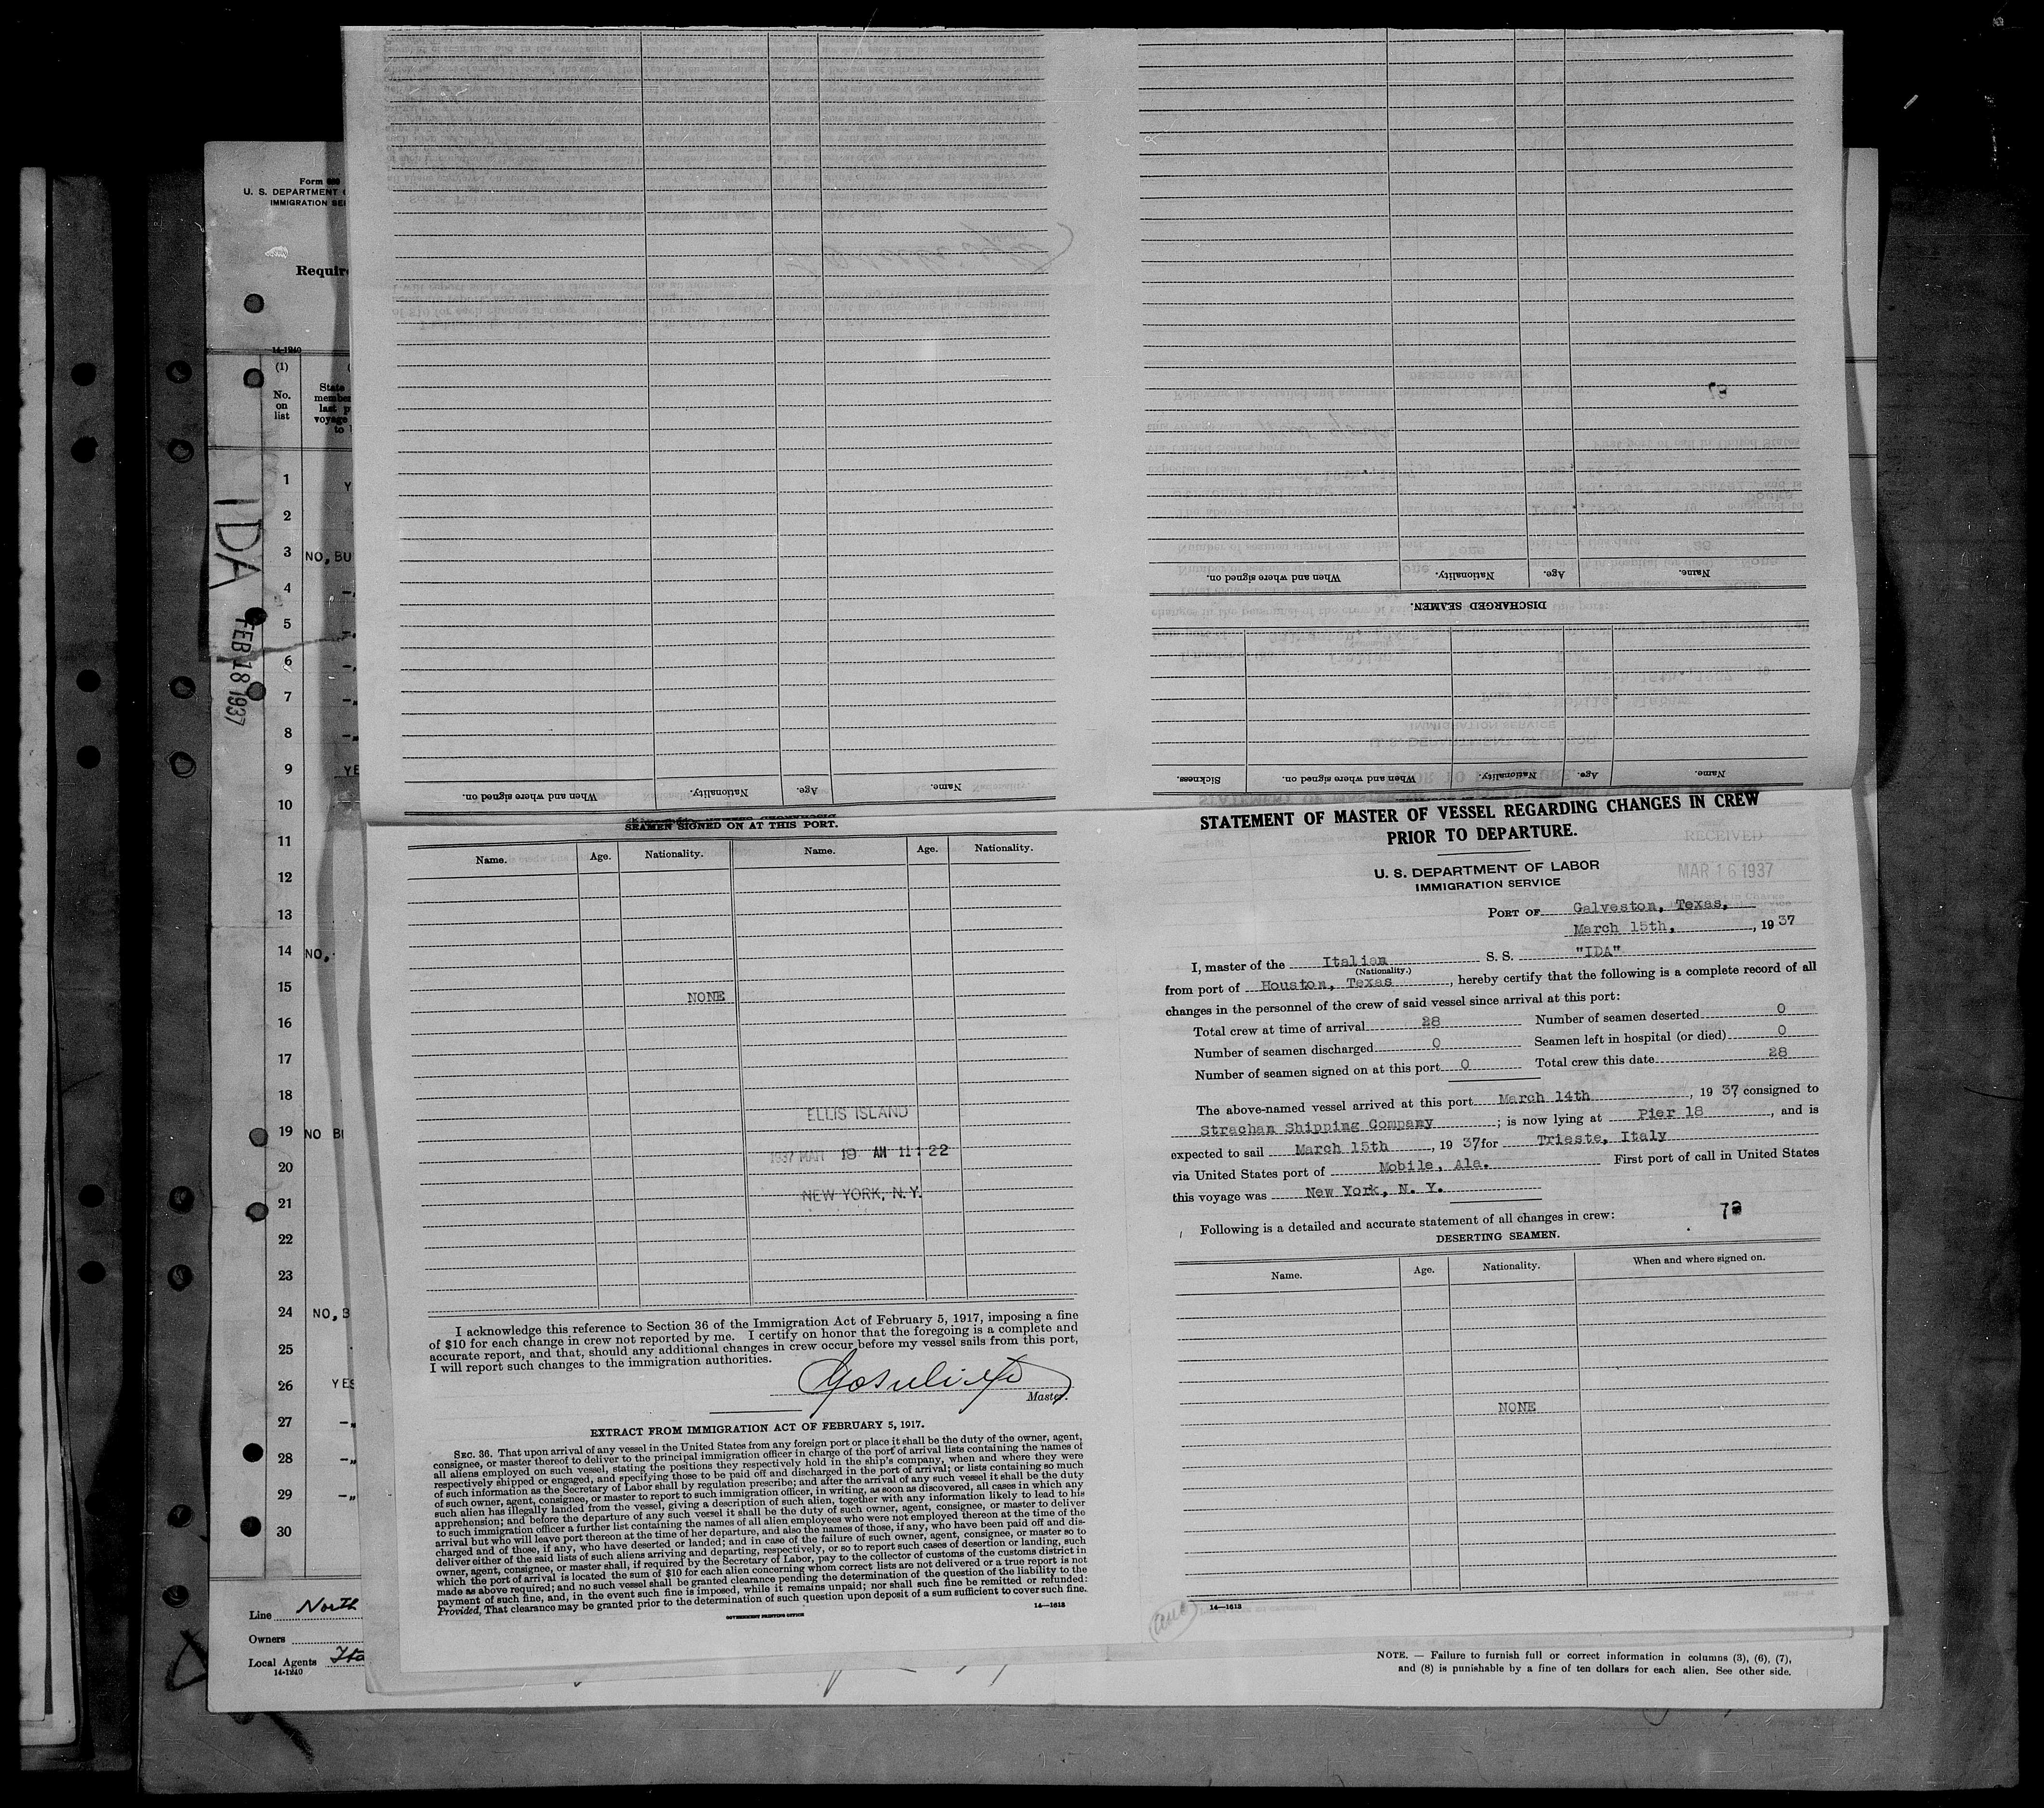 Form 689
U. S. DEPARTMENT
IMMIGRATION SE
Require
14-1240
(1)
No.
on
list
State
member
last p
voyage
to
IDA
FEB 18 1937
1 Y
2
3 NO, BU
4 -"
5 -"
6 -"
7 -"
8 -"
9 YE
10
11
12
13
14 NO,
15
16
17
18
19 NO BU
20
21
22
23
24 NO, B
25
26 YES
27 -"
28 -"
29 -"
30
Line North
Owners
Local Agents Ita
14-1240
When and where signed on. Nationality. Age. Name.
When and where signed on. Nationality. Age. Name.
DISCHARGED SEAMEN.
Sickness. When and where signed on. Nationality. Age. Name.
SEAMEN SIGNED ON AT THIS PORT.
Name. Age. Nationality. Name. Age. Nationality.
NONE
ELLIS ISLAND
1937 MAR 19 AM 11:22
NEW YORK, N.Y.
I acknowledge this reference to Section 36 of the Immigration Act of February 5, 1917, imposing a fine
of $10 for each change in crew not reported by me. I certify on honor that the foregoing is a complete and
accurate report, and that, should any additional changes in crew occur before my vessel sails from this port,
I will report such changes to the immigration authorities.
Master.
EXTRACT FROM IMMIGRATION ACT OF FEBRUARY 5, 1917.
SEC. 36. That upon arrival of any vessel in the United States from any foreign port or place it shall be the duty of the owner, agent,
consignee, or master thereof to deliver to the principal immigration officer in charge of the port of arrival lists containing the names of
all aliens employed on such vessel, stating the positions they respectively hold in the ship's company, when and where they were
respectively shipped or engaged, and specifying those to be paid off and discharged in the port of arrival; or lists containing so much
of such information as the Secretary of Labor shall by regulation prescribe; and after the arrival of any such vessel it shall be the duty
of such owner, agent, consignee, or master to report to such immigration officer, in writing, as soon as discovered, all cases in which any
such alien has illegally landed from the vessel, giving a description of such alien, together with any information likely to lead to his
apprehension; and before the departure of any such vessel it shall be the duty of such owner, agent, consignee, or master to deliver
to such immigration officer a further list containing the names of all alien employees who were not employed thereon at the time of the
arrival but who will leave port thereon at the time of her departure, and also the names of those, if any, who have been paid off and dis-
charged and of those, if any, who have deserted or landed; and in case of the failure of such owner, agent, consignee, or master so to
deliver either of the said lists of such aliens arriving and departing, respectively, or so to report such cases of desertion or landing, such
owner, agent, consignee, or master shall, if required by the Secretary of Labor, pay to the collector of customs of the customs district in
which the port of arrival is located the sum of $10 for each alien concerning whom correct lists are not delivered or a true report is not
made as above required; and no such vessel shall be granted clearance pending the determination of the question of the liability to the
payment of such fine, and, in the event such fine is imposed, while it remains unpaid; nor shall such fine be remitted or refunded:
Provided, That clearance may be granted prior to the determination of such question upon deposit of a sum sufficient to cover such fine.
GOVERNMENT PRINTING OFFICE 14—1613
STATEMENT OF MASTER OF VESSEL REGARDING CHANGES IN CREW
PRIOR TO DEPARTURE.
RECEIVED
MAR 16 1937
U. S. DEPARTMENT OF LABOR
IMMIGRATION SERVICE
PORT OF Galveston, Texas,
March 15th, , 19 37
I, master of the Italian S. S. "IDA"
(Nationality.)
from port of Houston, Texas , hereby certify that the following is a complete record of all
changes in the personnel of the crew of said vessel since arrival at this port:
Total crew at time of arrival 28 Number of seamen deserted 0
Number of seamen discharged 0 Seamen left in hospital (or died) 0
Number of seamen signed on at this port 0 Total crew this date 28
The above-named vessel arrived at this port March 14th , 19 37, consigned to
Strachan Shipping Company ; is now lying at Pier 18 , and is
expected to sail March 15th , 19 37 for Trieste, Italy
via United States port of Mobile, Ala. First port of call in United States
this voyage was New York, N. Y.
Following is a detailed and accurate statement of all changes in crew:
DESERTING SEAMEN.
Name. Age. Nationality. When and where signed on.
NONE
14—1613
NOTE. — Failure to furnish full or correct information in columns (3), (6), (7),
and (8) is punishable by a fine of ten dollars for each alien. See other side.